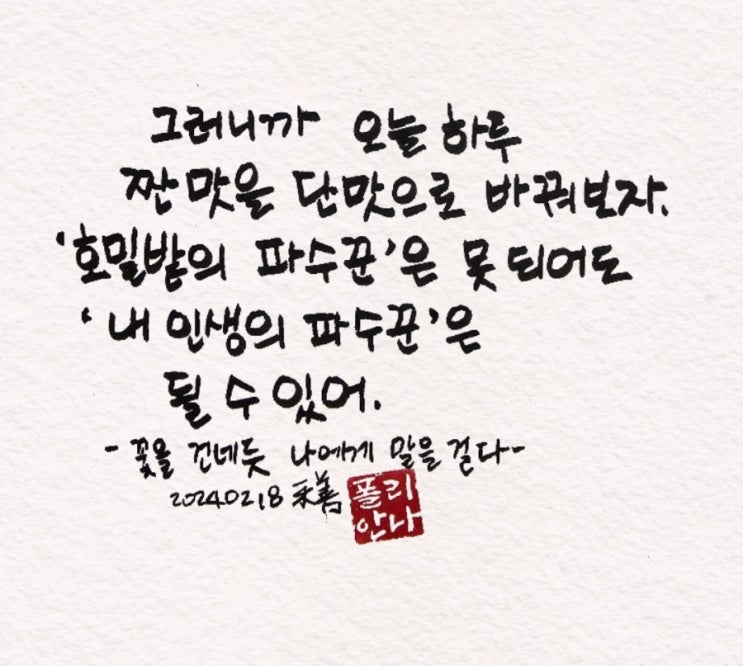 그러니까 오늘 하루
짠맛을 단맛으로 바꿔보자.
'호밀밭의 파수꾼'은 못 되어도
'내 인생의 파수꾼'은
될 수 있어.
- 꽃을 건네듯 나에게 말을 걸다-
20240218 永善
폴리
안나